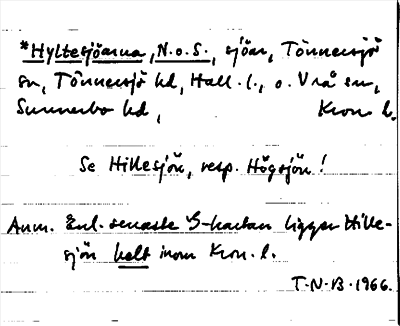 *Hyltesjöarna, N.o.S., sjöar, Tönnersjö
sn, Tönnersjö hd, Hall. l., o. Vrå sn,
Sunnerbo hd, Kron. l.
Se Hillesjön, resp. Högsjön!
Anm. Enl. senaste G-kartan ligger Hille-
sjön helt inom Kron. l.
T.N.B. 1966.